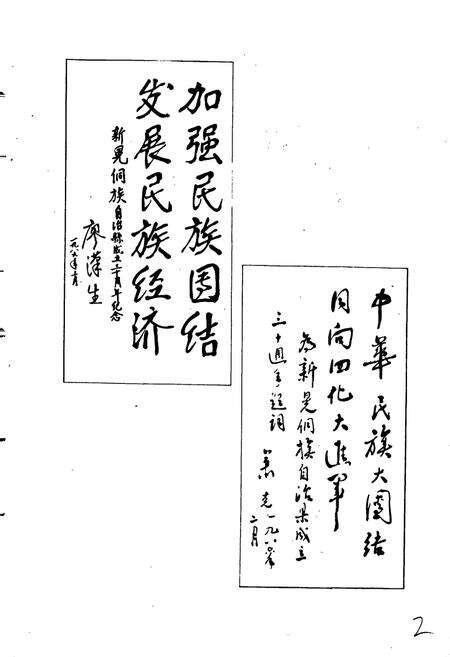 加强民族团结
发展民族经济
新晃侗族自治县成立三十周年纪念
廖汉生
一九八六年二月
中华民族大团结
同向四化大进军
为新晃侗族自治县成立
三十週年题词
萧克一九八六年
二月
2